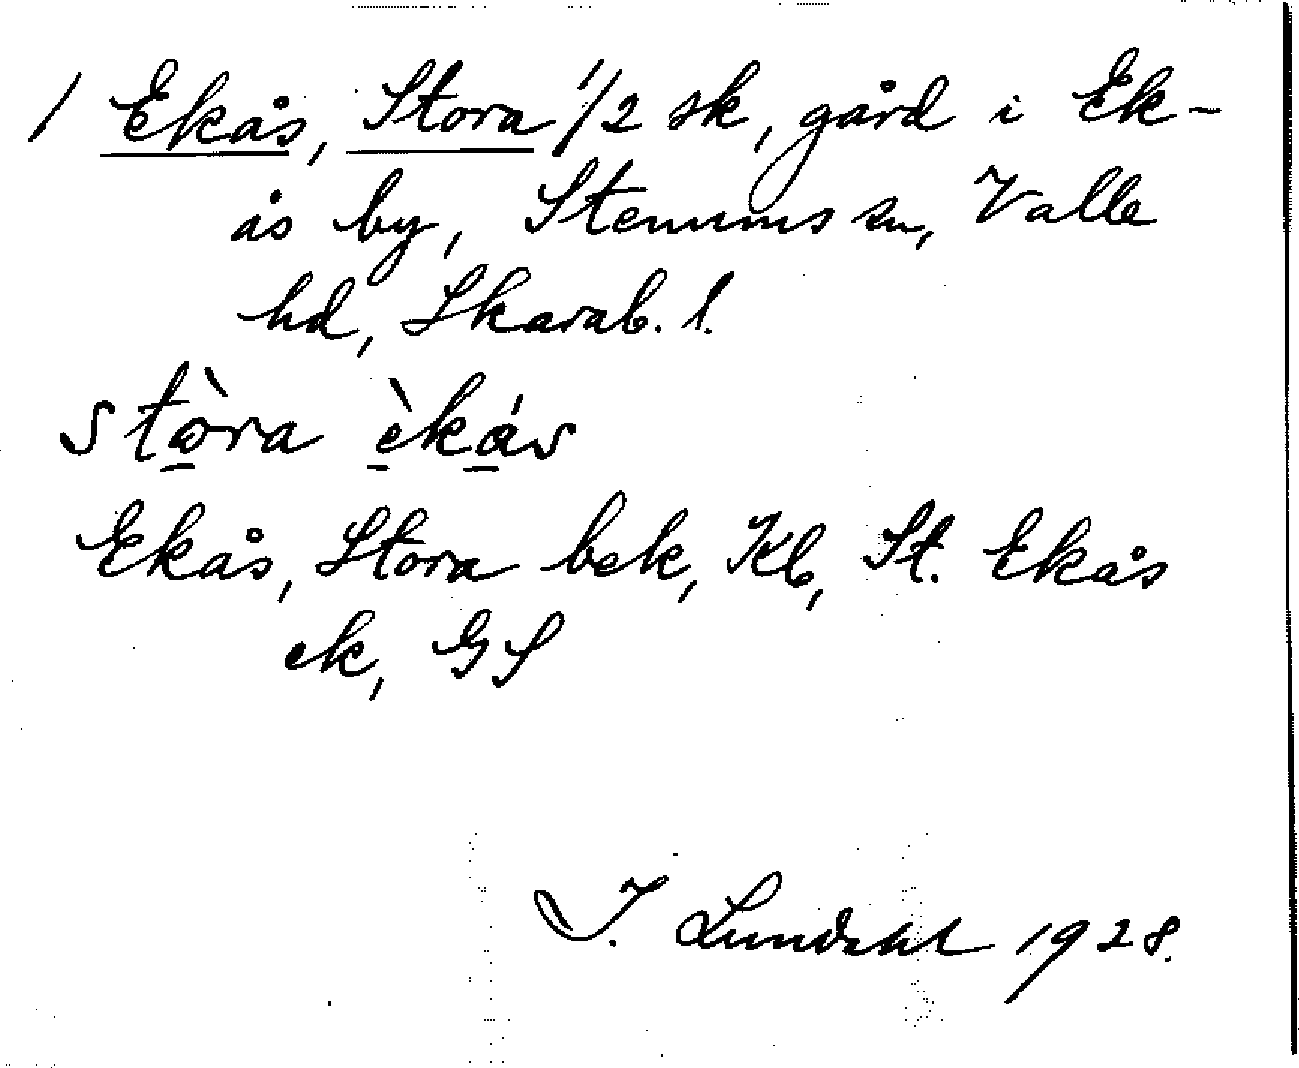 1 Ekås, Stora 1/2 sk, gård i Ek-
ås by, Stenums sn, Valle
hd, Skarab. l.
stòra èkás
Ekås, Stora bek, Kb, St. Ekås
ek, GS
I. Lundahl 1928.